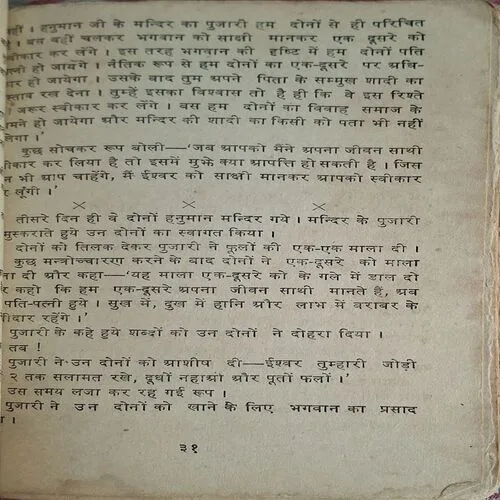 हीं । हनुमान जी के मन्दिर का पुजारी हम दोनों से ही परिचित
है । बस वहीं चलकर भगवान को साक्षी मानकर एक दूसरे को
वीकार कर लेंगे । इस तरह भगवान की दृष्टि में हम दोनों पति
त्नी हो जायेंगे । नैतिक रूप से हम दोनों का एक-दूसरे पर अधि-
ार हो जायेगा । उसके बाद तुम अपने पिता के सम्मुख शादी का
स्ताव रख देना । तुम्हें इसका विश्वास तो है ही कि वे इस रिश्ते
जरूर स्वीकार कर लेंगे । बस हम दोनों का विवाह समाज के
ामने हो जायेगा और मन्दिर की शादी का किसी को पता भी नहीं
लेगा ।'
कुछ सोचकर रूप बोली—'जब आपको मैंने अपना जीवन साथी
ीकार कर लिया है तो इसमें मुझे क्या आपत्ति हो सकती है । जिस
न भी आप चाहेंगे, मैं ईश्वर को साक्षी मानकर आपको स्वीकार
र लूँगी ।'
× × ×
तीसरे दिन ही वे दोनों हनुमान मन्दिर गये । मन्दिर के पुजारी
मुस्कराते हुये उन दोनों का स्वागत किया ।
दोनों को तिलक देकर पुजारी ने फूलों की एक-एक माला दी ।
कुछ मन्त्रोच्चारण करने के बाद दोनों ने एक-दूसरे को माला
ना दी और कहा—'यह माला एक-दूसरे को के गले में डाल दो
र कहो कि हम एक-दूसरे अपना जीवन साथी मानते हैं, अब
पति-पत्नी हुये । सुख में, दुख में हानि और लाभ में बराबर के
गीदार रहेंगे ।'
पुजारी के कहे हुये शब्दों को उन दोनों ने दोहरा दिया ।
तब !
पुजारी ने उन दोनों को आशीष दी—ईश्वर तुम्हारी जोड़ी
२ तक सलामत रखे, दूधों नहाओ और पूतों फलों ।'
उस समय लजा कर रह गई रूप ।
पुजारी ने उन दोनों को खाने के लिए भगवान का प्रसाद
ा ।
३१